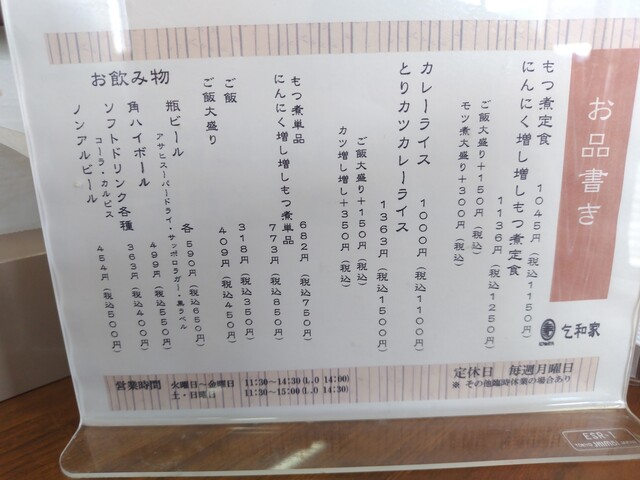 お品書き
もつ煮定食 1045円（税込1150円）
にんにく増し増しもつ煮定食
1136円（税込1250円）
ご飯大盛り＋150円（税込）
モツ煮大盛り＋300円（税込）
カレーライス 1000円（税込1100円）
とりカツカレーライス
1363円（税込1500円）
ご飯大盛り＋150円（税込）
カツ増し増し＋350円（税込）
もつ煮単品 682円（税込750円）
にんにく増し増しもつ煮単品
773円（税込850円）
ご飯 318円（税込350円）
ご飯大盛り 409円（税込450円）
お飲み物
瓶ビール 各590円（税込650円）
アサヒスーパードライ・サッポロラガー・黒ラベル
角ハイボール 499円（税込550円）
ソフトドリンク各種 363円（税込400円）
コーラ・カルピス
ノンアルビール 454円（税込500円）
乞和家
定休日 毎週月曜日
※ その他臨時休業の場合あり
営業時間 火曜日～金曜日 11:30～14:30(L.O 14:00)
土・日曜日 11:30～15:00(L.O 14:30)
ESR-1